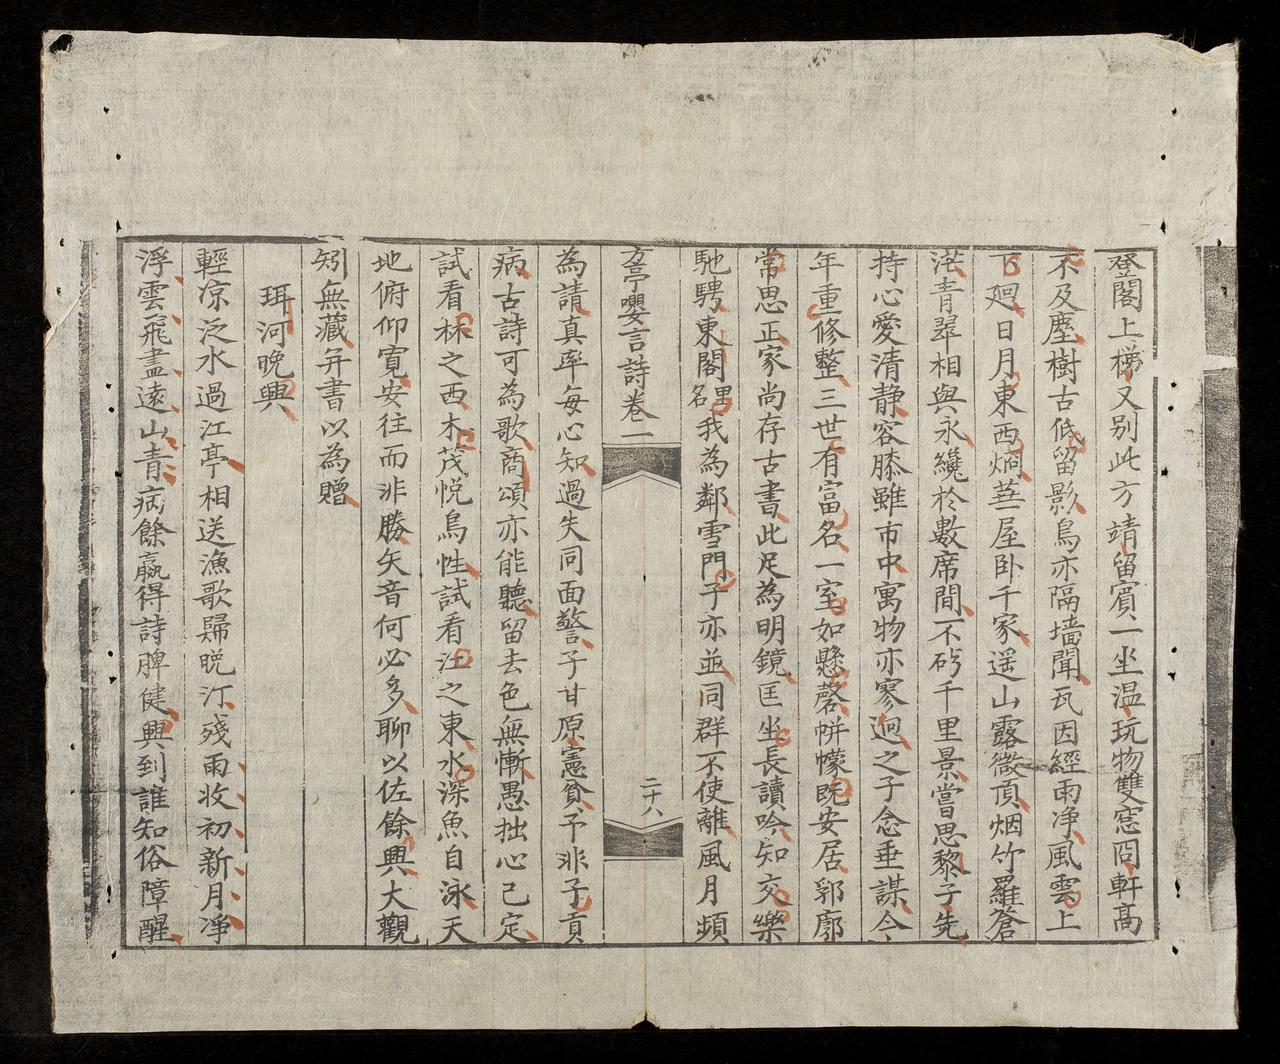 登閣上梯又別此方靖留賓一坐温玩物雙窓冏軒高
不及塵樹古低留影鳥亦隔墻聞瓦因經雨净風雲上
下廻日月東西炯茎屋卧千家遥山露微頂烟竹羅蒼
茫青翠相與永纔於數席間不碍千里景嘗思黎子先
持心愛清静容膝雖市中寓物亦寥迥之子念垂謀今
年重修整三世有富名一室如懸磬帡幪既安居郭廓
常思正家尚存古書此足為明鏡匡坐長讀吟知交樂
馳騁東閣里名我為鄰雪門子亦並同群不使離風月頻
方亭嚶言詩卷一 二十八
為請真率每心知過失同面警子甘原憲貧予非子貢
病古詩可為歌商頌亦能聽留去色無慚愚拙心已定
試看林之西木茂悦鳥性試看江之東水深魚自泳天
地俯仰寛安往而非勝矢音何必多聊以佐餘興大觀
矧無藏并書以為贈
珥河晚興
輕凉泛水過江亭相送漁歌歸晚汀残雨收初新月凈
浮雲飛盡遠山青病餘贏得詩脾健興到誰知俗障醒